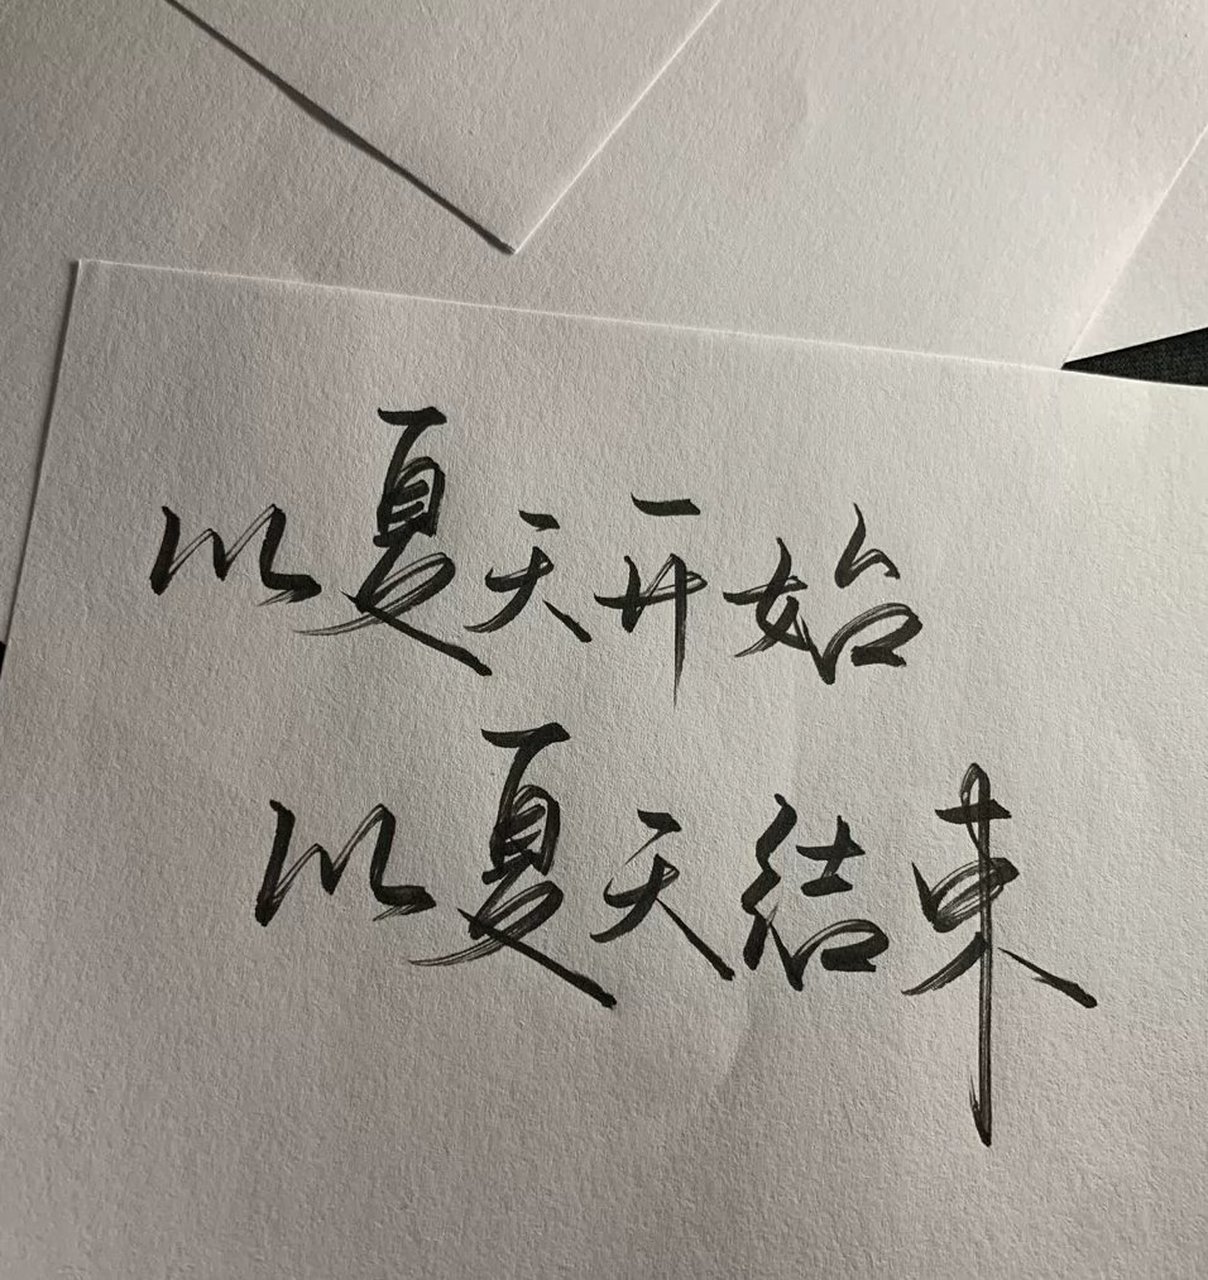 以夏天开始
以夏天结束